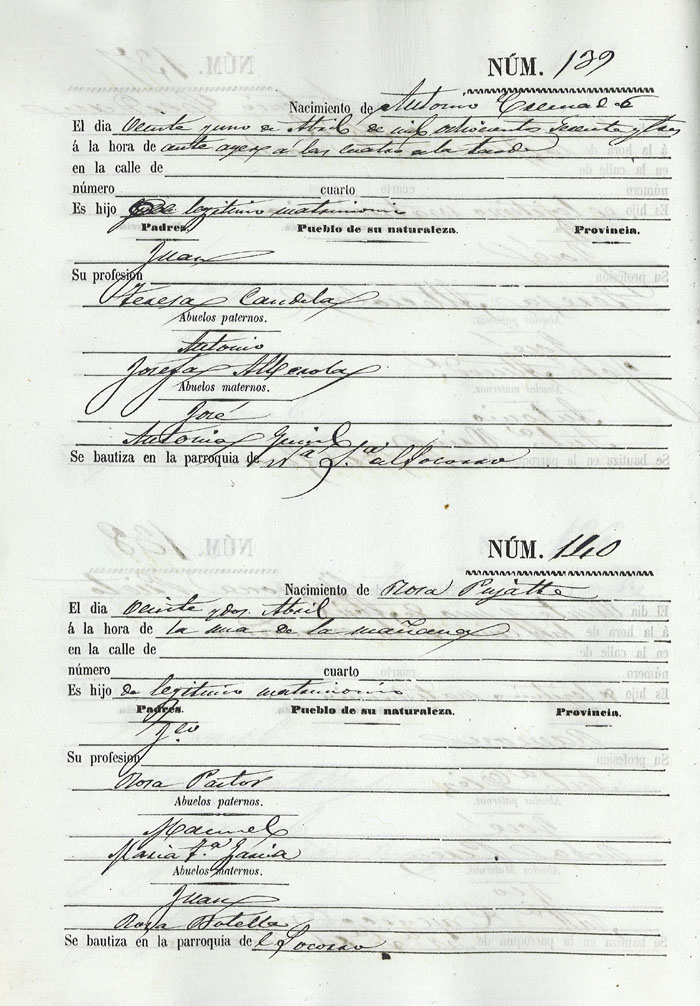 NÚM. 139
Nacimiento de Antonio Cremades
El dia Veinte y uno de Abril de mil ochocientos sesenta y tres
á la hora de ante ayer á las cuatro de la tarde
en la calle de
número cuarto
Es hijo de legitimo matrimonio
Padres. Pueblo de su naturaleza. Provincia.
Juan
Su profesion
Teresa Candela
Abuelos paternos.
Antonio
Josefa
Abuelos maternos.
José
Antonia
Se bautiza en la parroquia de Nª Sª del Socorro
NÚM. 140
Nacimiento de Rosa
El dia Veinte y dos Abril
á la hora de la una de la mañana
en la calle de
número cuarto
Es hijo de legitimo matrimonio
Padres. Pueblo de su naturaleza. Provincia.
Su profesion
Rosa Pastor
Abuelos paternos.
Manuel
Maria Fª Garcia
Abuelos maternos.
Juan
Rosa Botella
Se bautiza en la parroquia de l Socorro